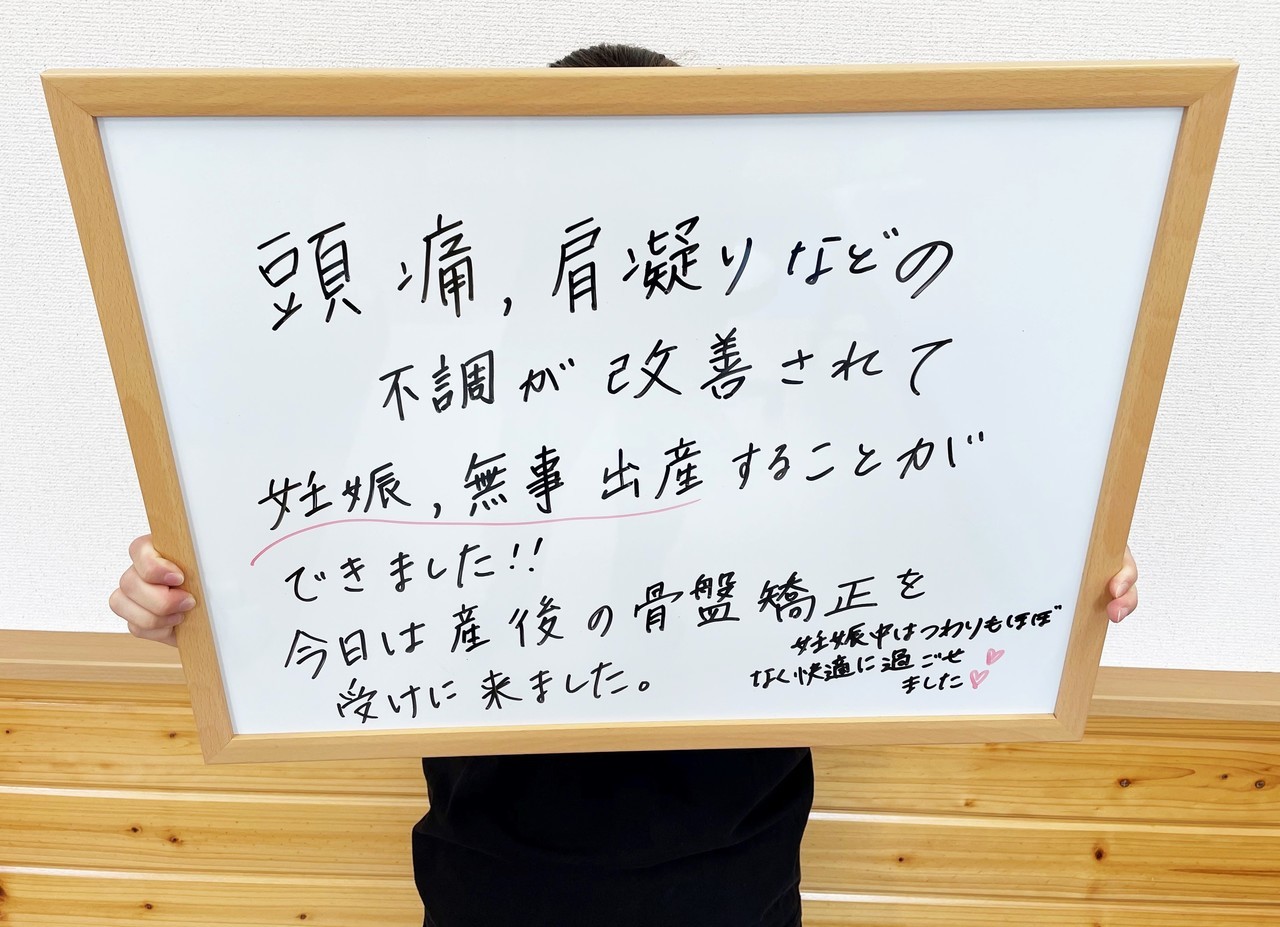 頭痛,肩凝りなどの
不調が改善されて
妊娠,無事出産することが
できました!!
今日は産後の骨盤矯正を
受けに来ました。
妊娠中はつわりもほぼ
なく快適に過ごせ
ました